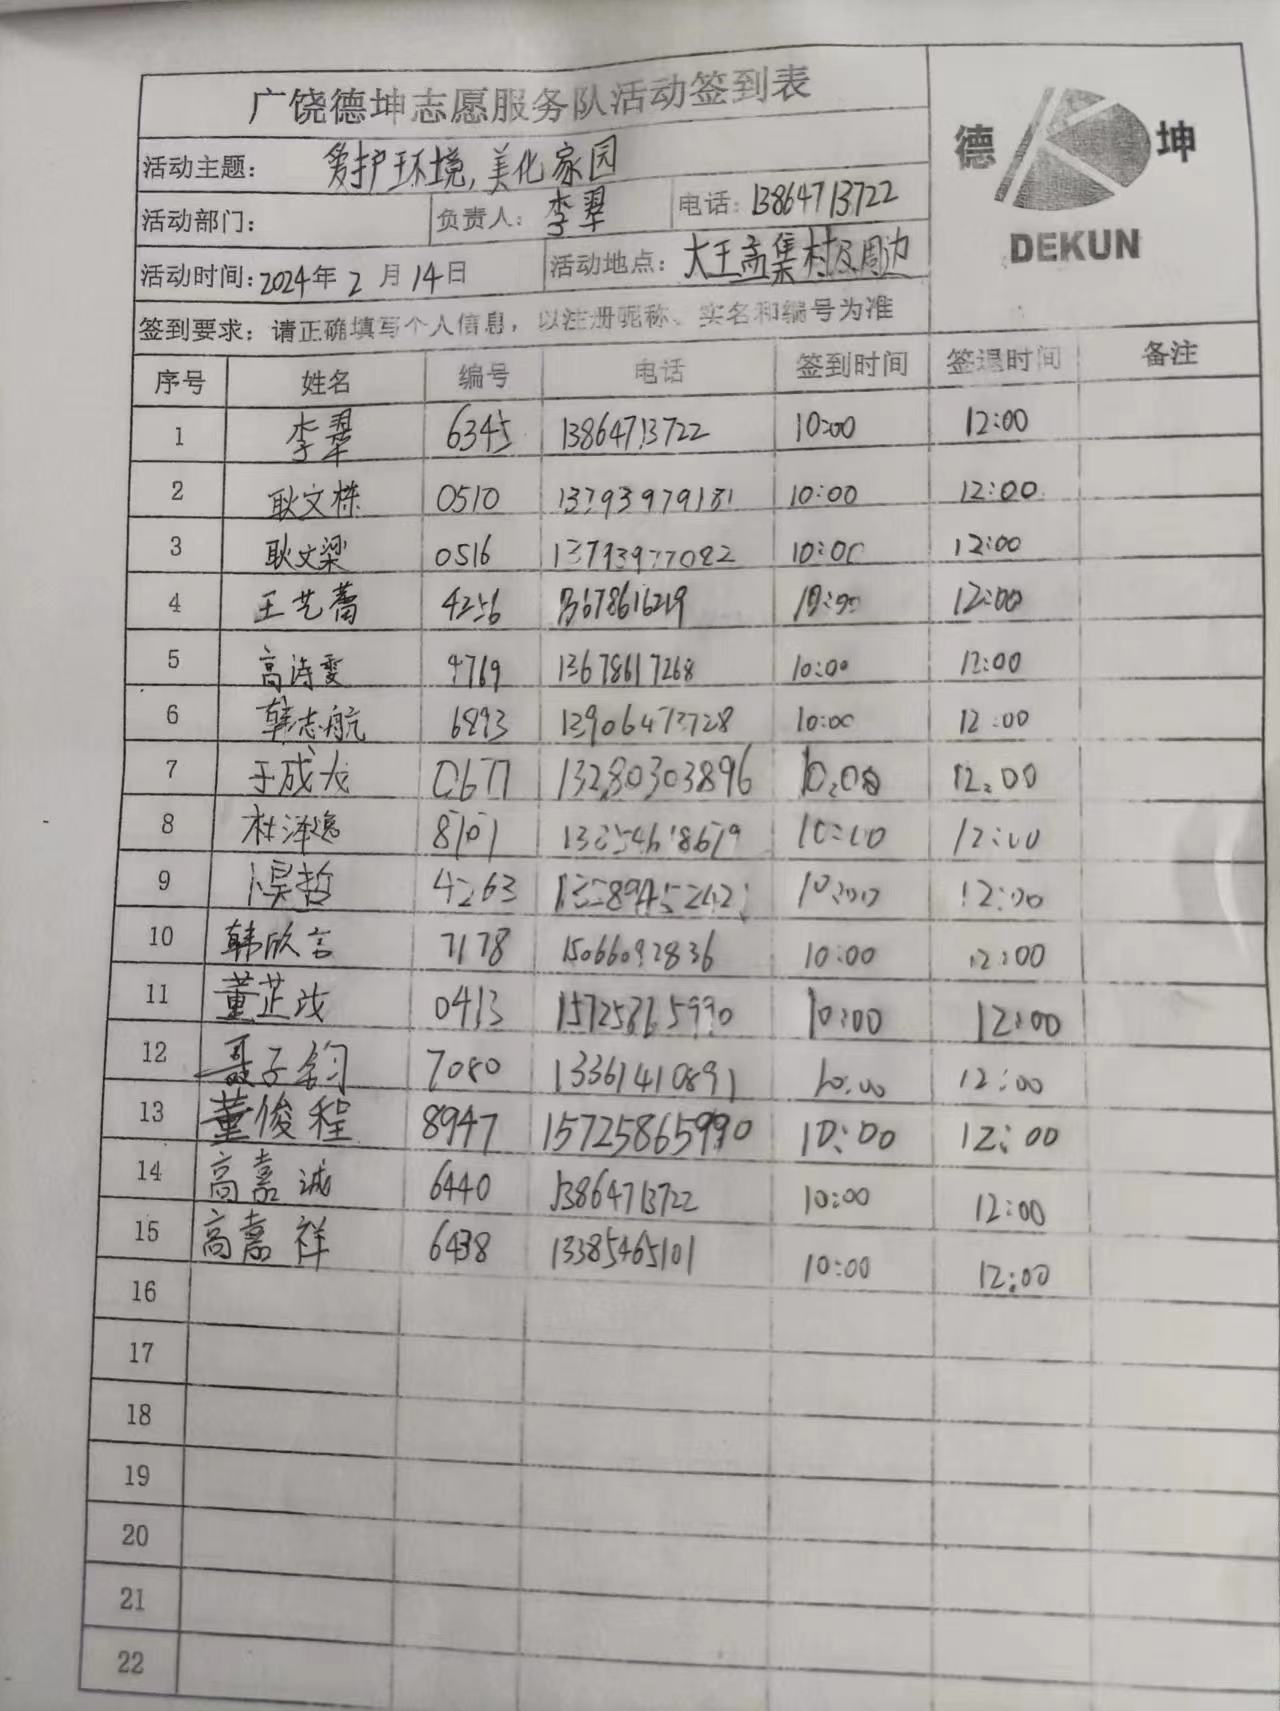 广饶德坤志愿服务队活动签到表
德 坤
DEKUN
活动主题： 爱护环境,美化家园
活动部门： 负责人：李翠 电话：13864713722
活动时间：2024年2月14日 活动地点：大王孟集村及周边
签到要求：请正确填写个人信息，以注册昵称、实名和编号为准
序号 姓名 编号 电话 签到时间 签退时间 备注
1 李翠 6345 13864713722 10:00 12:00
2 耿文栋 0510 13793979181 10:00 12:00
3 耿文梁 0516 13793977082 10:00 12:00
4 王艺蕾 4256 13678616219 10:00 12:00
5 高诗雯 4769 13678617268 10:00 12:00
6 韩志航 6893 13906473728 10:00 12:00
7 于成龙 0677 13280303896 10:00 12:00
8 杜泽逸 10:00 12:00
9 4263 10:00 12:00
10 韩欣言 7178 15066092836 10:00 12:00
11 董芷 0413 10:00 12:00
12 聂子钧 7080 13361410891 10:00 12:00
13 董俊程 8947 15725865990 10:00 12:00
14 高嘉诚 6440 13864713722 10:00 12:00
15 高嘉祥 6438 13385465101 10:00 12:00
16
17
18
19
20
21
22